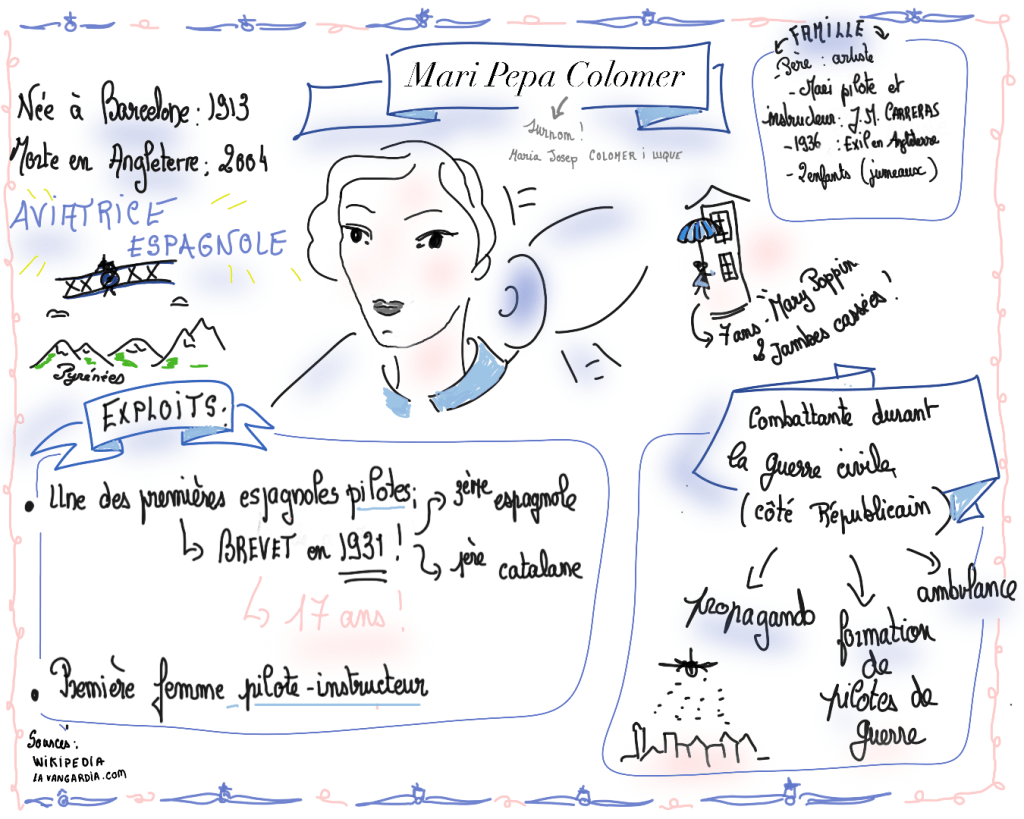 Mari Pepa Colomer
Surnom !
Maria Josep COLOMER i LUQUE
Née à Barcelone : 1913
Morte en Angleterre : 2004
AVIATRICE
ESPAGNOLE
Pyrénées
FAMILLE
- Père : artiste
- Mari pilote et
instructeur : J.M. CARRERAS
- 1936 : Exil en Angleterre
- 2 enfants (jumeaux)
7 ans - Mary Poppin
& Jambes cassées !
EXPLOITS.
• Une des premières espagnoles pilotes;
3ème espagnole
BREVET en 1931 !
1ère catalane
17 ans !
• Première femme pilote-instructeur
Combattante durant
la guerre civile,
(côté Républicain)
propagande
formation
de
pilotes de
guerre
ambulance
Sources :
WIKIPEDIA
LAVANGARDIA.com